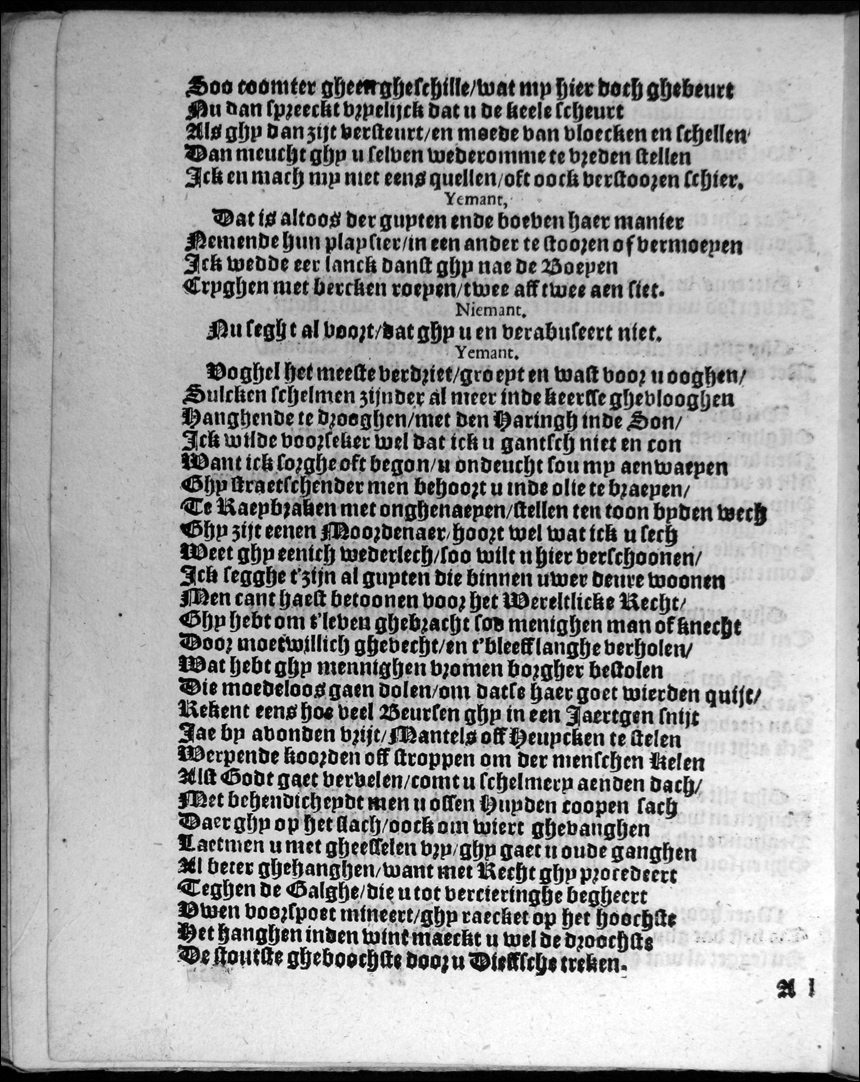 Soo coomter gheen gheschille/wat my hier doch ghebeurt
Nu dan spreeckt vrpelijck dat u de keele scheurt
Als ghy dan zijt versteurt/en moede van vloecken en schellen
Dan meucht ghy u selven wederomme te vreden stellen
Ick en mach my niet eens quellen/oft oock verstooren schier.
Yemant,
Dat is altoos der guyten ende boeven haer manier
Nemende hun playsier/in een ander te stooren of vermoeyen
Ick wedde eer lanck danst ghy nae de Boeyen
Cryghen met bercken roeyen/twee aff twee aen siet.
Niemant.
Nu seght al voort/dat ghy u en verabuseert niet.
Yemant.
Voghel het meeste verdriet/groeyt en wast voor u ooghen/
Sulcken schelmen zijnder al meer inde keersse ghevlooghen
Hanghende te drooghen/met den Haringh inde Son/
Ick wilde voorseker wel dat ick u gantsch niet en con
Want ick sorghe oft begon/u ondeucht sou my aenwaeyen
Ghy straetschender men behoort u inde olie te braeyen/
Te Raeybraken met onghenaeyen/stellen ten toon byden wech
Ghy zijt eenen Moordenaer/hoort wel wat ick u sech
Weet ghy eenich wederlech/soo wilt u hier verschoonen/
Ick segghe t'zijn al guyten die binnen uwer deure woonen
Men cant haest betoonen voor het Wereltlicke Recht/
Ghy hebt om t'leven ghebracht soo menighen man of knecht
Door moetwillich ghevecht/en t'bleeff langhe verholen/
Wat hebt ghy mennighen vromen borgher bestolen
Die moedeloos gaen dolen/om datse haer goet wierden quijt/
Rekent eens hoe veel Beursen ghy in een Jaertgen snijt
Jae by avonden vrijt/Mantels off Heuycken te stelen
Werpende koorden off stroppen om der menschen Kelen
Alst Godt gaet vervelen/comt u schelmery aenden dach/
Met behendicheydt men u ossen Huyden coopen sach
Daer ghy op het slach/oock om wiert ghevanghen
Laetmen u met gheesselen vry/ghy gaet u oude ganghen
Al beter ghehanghen/want met Recht ghy procedeert
Teghen de Galghe/die u tot vercieringhe begheert
Vwen voorspoet mineert/ghy raecket op het hoochste
Het hanghen inden wint maeckt u wel de droochste
De stoutste gheboochste door u Dieffsche treken.
A